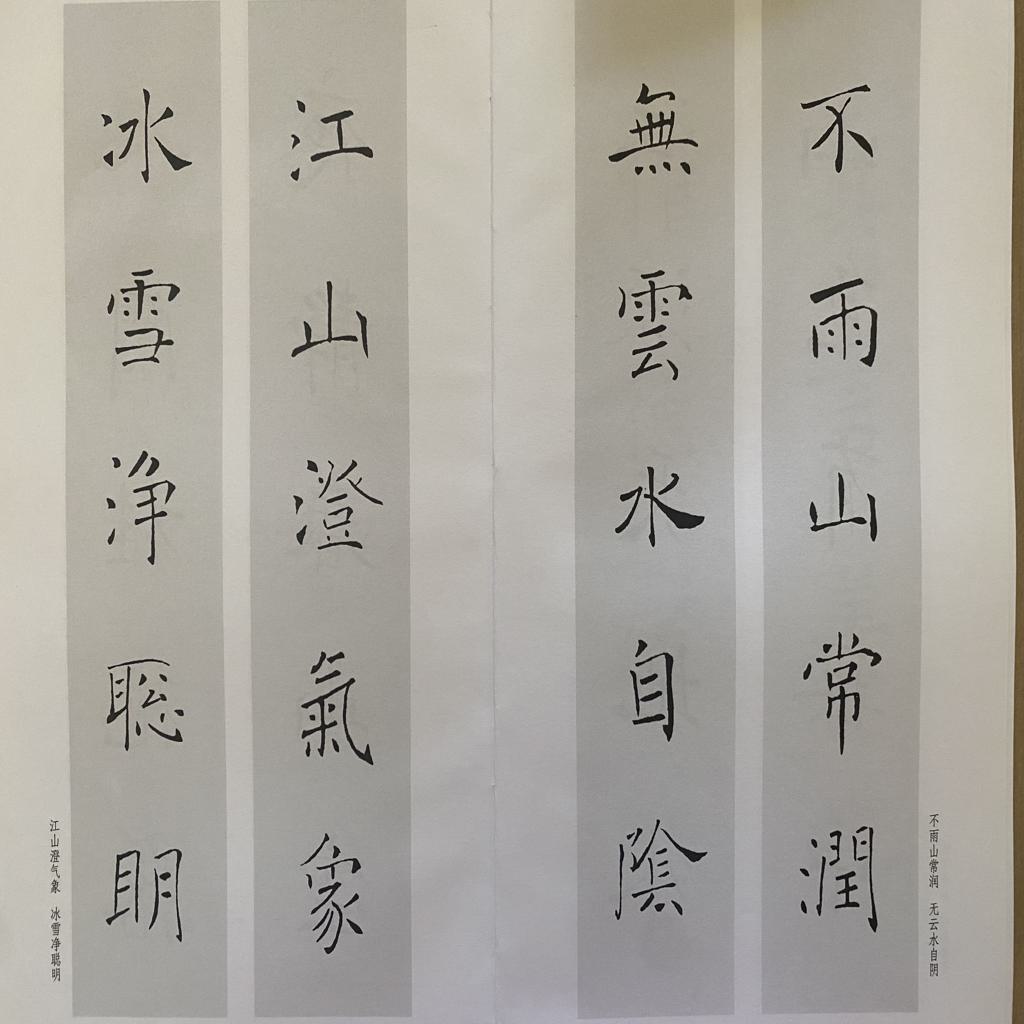 不雨山常潤
無雲水自陰
不雨山常润 无云水自阴
江山澄氣象
冰雪净聡明
江山澄气象 冰雪净聪明